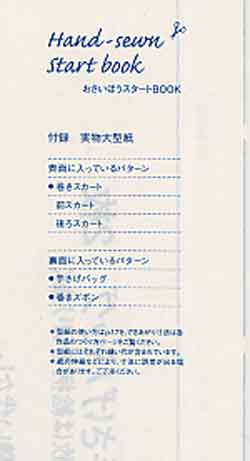 Hand-sewn
Start book
おさいほうスタートBOOK
付録 実物大型紙
表面に入っているパターン
●巻きスカート
前スカート
後ろスカート
裏面に入っているパターン
●手さげバッグ
●昼まズボン
●型紙の使い方はp.37を、できあがり寸法は各
作品のつくり方ページをご覧ください。
●型紙にはそれぞれ縫い代が含まれています。
●紙の伸縮などにより、寸法に誤差が出る場
合があります。ご了承ください。